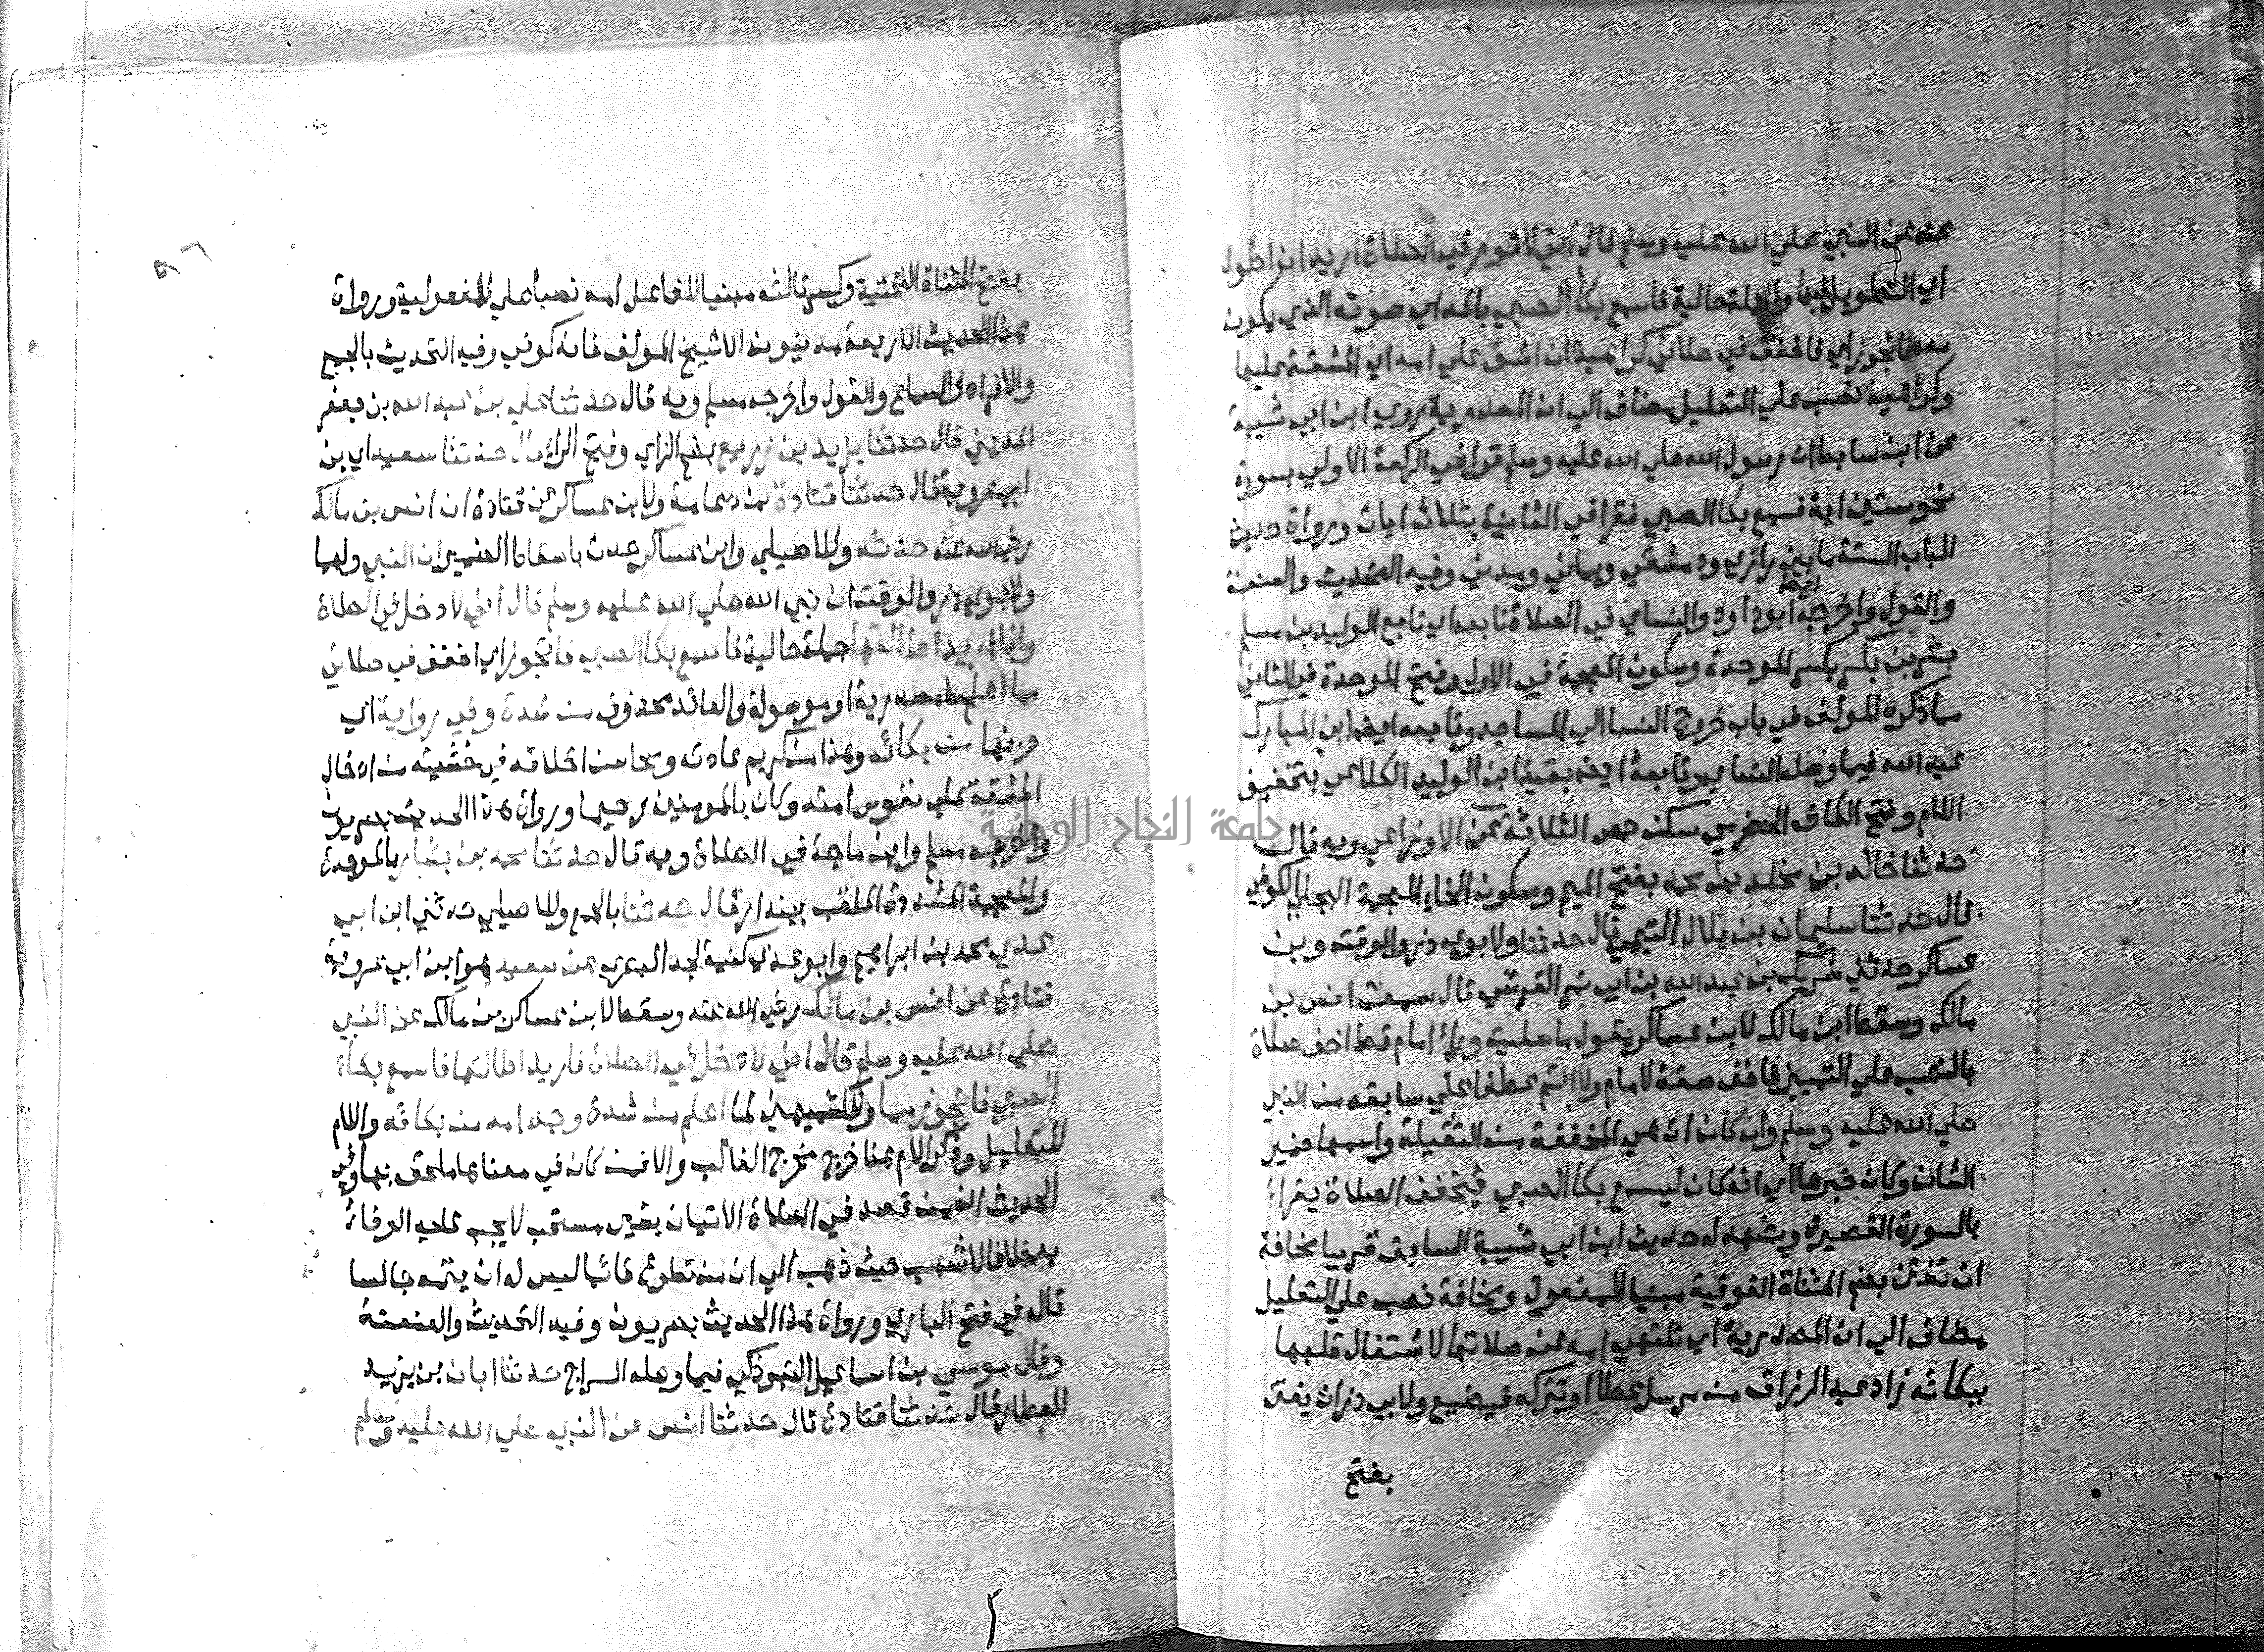 عنه عن النبي صلي الله عليه وسلم قال اني لاقوم في الصلاة اريد ان اطول
اي التطويل فيها والجملة حالية فاسمع بكأ الصبي بالمد اي صوته الذي يكون
معه فاتجوز اي فاخفف في صلاتي كراهية ان اشق علي امه اي المشقة عليها
وكراهية نصب علي التعليل مضاف الي ان المصدرية روي ابن ابي شيبة
عن ابن سابط ان رسول الله صلي الله عليه وسلم قرا في الركعة الاولي بسورة
نحو ستين اية فسمع بكا الصبي فقرا في الثانية بثلاث ايات ورواة حديث
الباب الستة ما بين رازي ودمشقي ويماني ومدني وفيه التحديث والعنعنة
والقول واخرجه ايضا ابو داود والنساي في الصلاة تابعه اي تابع الوليد بن مسلم
بشر بن بكر بكسر الموحدة وسكون المعجمة في الاول وفتح الموحدة في الثاني
مما ذكره المولف في باب خروج النسا الي المساجد وتابعه ايضا ابن المبارك
عبد الله فيما وصله النساي وتابعه ايضا بقية ابن الوليد الكلاعي بتخفيف
اللام وفتح الكاف الحضرمي سكن حمص الثلاثة عن الاوزاعي وبه قال
حدثنا خالد بن مخلد بفتح الميم وسكون الخاء المعجمة البجلي الكوفي
قال حدثنا سليمان بن بلال التيمي قال حدثنا ولابوي ذر والوقت وبن
عساكر حدثني شريك بن عبد الله بن ابي نمر القرشي قال سمعت انس بن
مالك وسقط ابن مالك لابن عساكر يقول ما صليت وراء امام قط اخف صلاة
بالنصب علي التمييز فاخف صفة لامام ولا اتم عطفا علي سابقه من النبي
صلي الله عليه وسلم وان كان ان هي المخففة من الثقيلة واسمها ضمير
الشان وكان خبرها اي انه كان ليسمع بكا الصبي فيخفف الصلاة يقراء
بالسورة القصيرة ويشهد له حديث ابن ابي شيبة السابق قريبا مخافة
ان تفتن بضم المثناة الفوقية مبنيا للمفعول ومخافة نصب علي التعليل
مضاف الي ان المصدرية اي تلتهي امه عن صلاتها لاشتغال قلبها
ببكائه زاد عبد الرزاق من مرسل عطا او تتركه فيضيع ولابي ذر ان يفتن
بفتح
بفتح المثناة التحتية وكسر ثالثه مبنيا للفاعل امه نصبا علي المفعولية ورواة
هذا الحديث الاربعة مدنيون الا شيخ المولف فانه كوفي وفيه التحديث بالجمع
والافراد والسماع والقول واخرجه مسلم وبه قال حدثنا علي بن عبد الله بن جعفر
المديني قال حدثنا يزيد بن زريع بضم الزاي وفتح الراء قال حدثنا سعيد اي بن
ابي عروبة قال حدثنا قتادة بن دعامة ولابن عساكر عن قتادة ان انس بن مالك
رضي الله عنه حدثه وللاصيلي وابن عساكر حدث باسقاط الضمير ان النبي ولهما
ولابوي ذر والوقت ان نبي الله صلي الله عليه وسلم قال اني لادخل في الصلاة
وانا اريد اطالتها جملة حالية فاسمع بكا الصبي فاتجوز اي اخفف في صلاتي
مما اعلم ما مصدرية او موصولة والعائد محذوف من شدة وفي رواية اي
حزنها من بكائه وهذا من كريم عادته ومحاسن اخلاقه في خشيته من ادخال
المشقة علي نفوس امته وكان بالمومنين رحيما ورواة هذا الحديث بصريون
واخرجه مسلم وابن ماجة في الصلاة وبه قال حدثنا محمد بن بشار بالموحدة
والمعجمة المشددة الملقب ببندار قال حدثنا بالجمع وللاصيلي حدثني ابن ابي
عدي محمد بن ابراهيم وابو عدي كنية لجد البصري عن سعيد هو ابن ابي عروبة
قتادة عن انس بن مالك رضي الله عنه وسقط لابن عساكر بن مالك عن النبي
صلي الله عليه وسلم قال اني لادخل في الصلاة فاريد اطالتها فاسمع بكاء
الصبي فاتجوز مما وللكشميهني لما اعلم من شدة وجد امه من بكائه واللام
للتعليل وذكر الام هنا خرج مخرج الغالب والا فمن كان في معناها ملحق بها وفي
الحديث ان من قصد في الصلاة الاتيان بشي مستحب لا يجب عليه الوفاء
به خلافا لاشهب حيث ذهب الي ان من تطوع قائما ليس له ان يتمه جالسا
قال في فتح الباري ورواة هذا الحديث بصريون وفيه التحديث والعنعنة
وقال موسي بن اسماعيل التبوذكي فيما وصله السراج حدثنا ابان بن يزيد
العطار قال حدثنا قتادة قال حدثنا انس عن النبي صلي الله عليه وسلم
جامعة النجاح الوطنية